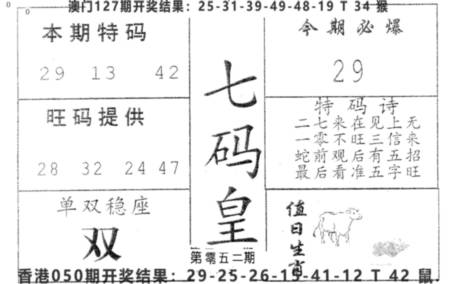 澳门127期开奖结果：25-31-39-49-48-19 T 34 猴
本期特码
29 13 42
旺码提供
28 32 24 47
单双稳座
双
七码皇
第零五二期
今期必爆
29
特码诗
二七来在见上无
一零不旺三信来
蛇前观后有五招
最后看准五字旺
值日生肖
香港050期开奖结果：29-25-26-19-41-12 T 42 鼠.